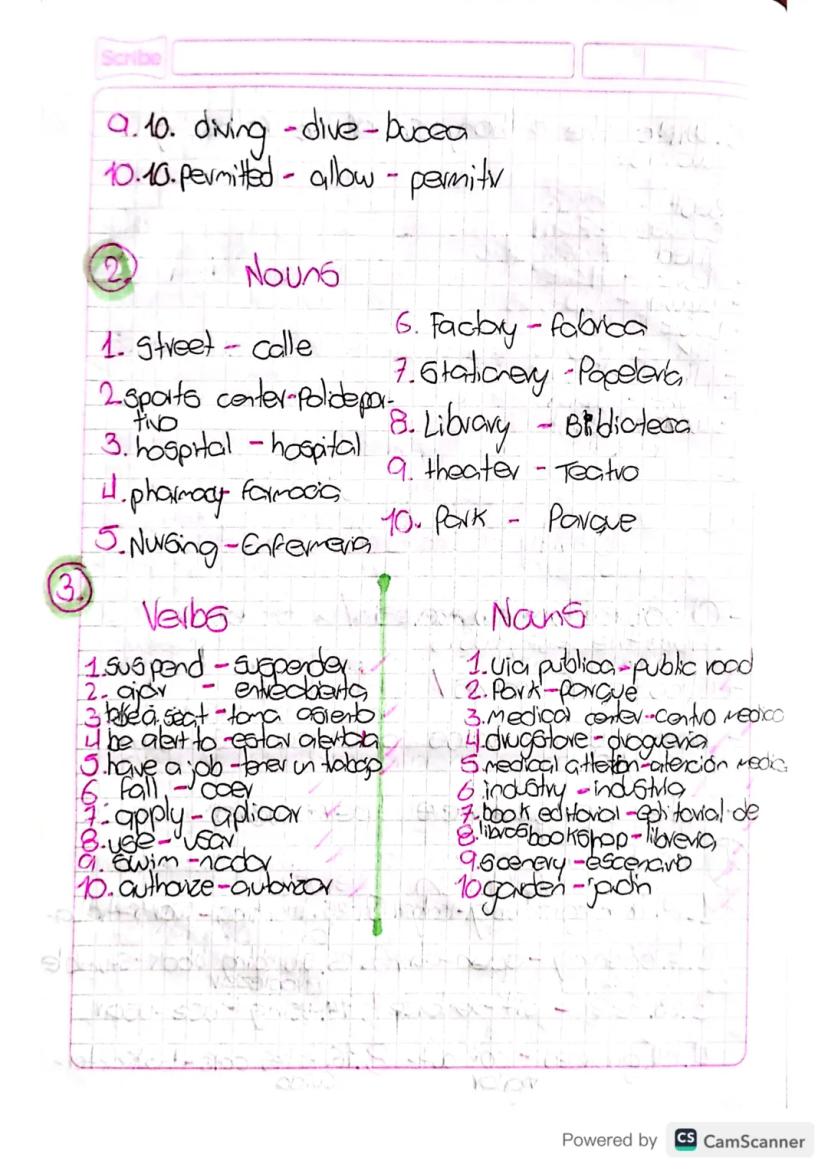 Scribe
9.10. diving - dive - bucea
10.10. permitted - allow - permitir
2. Nouns
1. Street - calle
2. sports center - Polidepor-
tivo
3. hospital - hospital
4. pharmacy - farmacia
5. Nursing - Enfermeria
6. Factory - fabrica
7. Stationery - Papeleria
8. Library - Biblioteca
9. theater - Teatro
10. Park - Parque
3.
Verbs
1. suspend - suspender
2. ajar - entreabierta
3 take a seat - toma asiento
4 be alert to - estar alerta
5. have a job - tener un trabajo
6 fall - caer
7. apply - aplicar
8. use - usar
9. swim - nadar
10. authorize - autorizar
Nouns
1. via publica - public road
2. Park - parque
3. medical center - centro medico
4. drugstore - drogueria
5. medical attetion - atención medic
6 industry - industria
7. book editorial - editorial de
libros
8. bookshop - libreria
9. scenery - escenario
10 garden - jardin
Powered by CS CamScanner